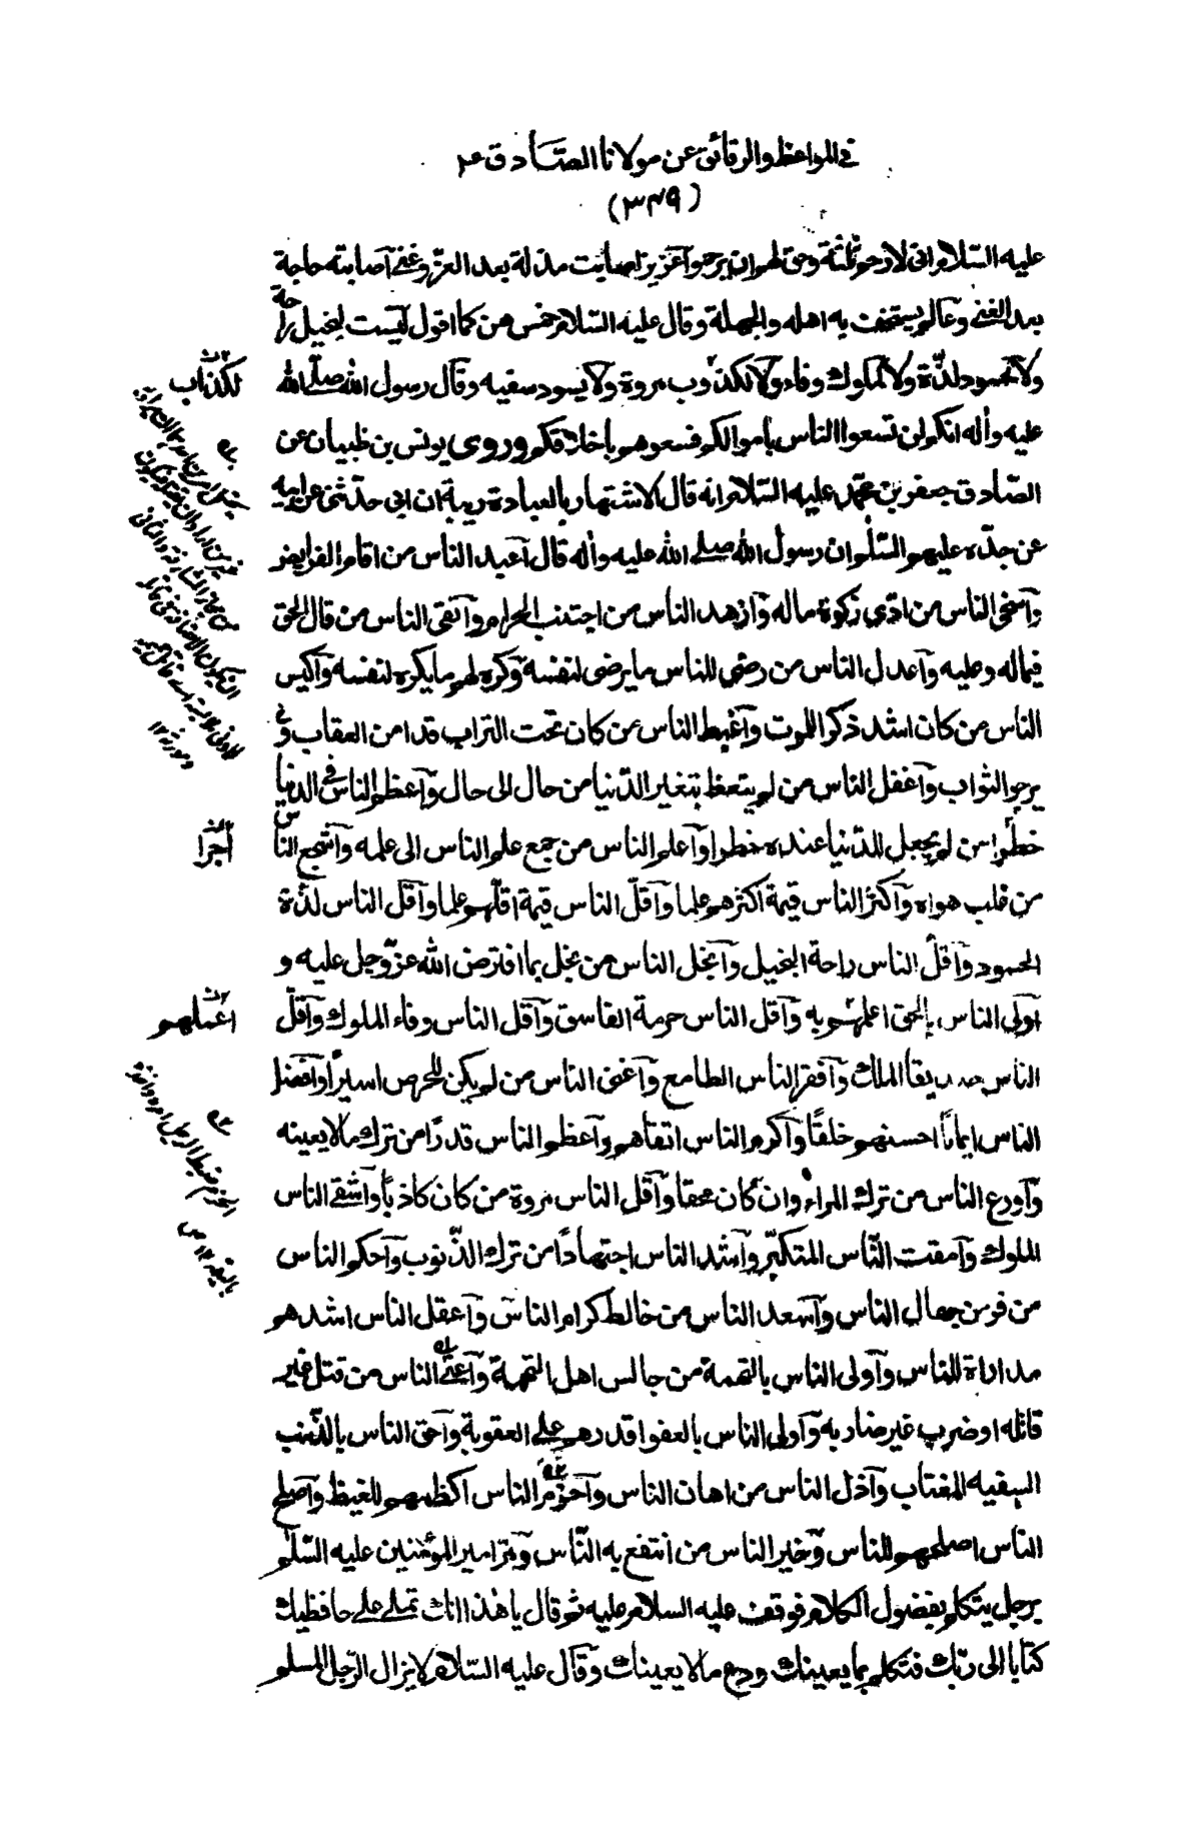 في المواعظ والرقائق عن مولانا الصادق ع
(٣٤٩)
عليه السّلام انى لارحم ثلثة وحق لهم ان يرحموا عزيز اصابته مذلة بعد العزّ وغنى اصابته حاجة
بعد الغنى وعالم يستخف به اهله والجهلة وقال عليه السّلام خمس من كما اقول ليست لبخيل راحة
ولا لحسود لذّة ولا لملوك وفاء ولا لكذوب مروة ولا يسود سفيه وقال رسول الله صلى الله
لكذاب
عليه وآله انكم لن تسعوا الناس باموالكم فسعوهم باخلاقكم وروى يونس بن ظبيان عن
الصّادق جعفر بن محمّد عليه السّلام انه قال الاشتهار بالعبادة ريبة ان ابى حدّثنى عن ابيه
عن جدّه عليهم السّلم ان رسول الله صلى الله عليه وآله قال اعبد الناس من اقام الفرايض
واسخى الناس من ادّى زكوة ماله وازهد الناس من اجتنب الحرام واتقى الناس من قال الحق
فيما له وعليه واعدل الناس من رضى للناس ما يرضى لنفسه وكره لهم ما يكره لنفسه واكيس
الناس من كان اشد ذكرا للموت واغبط الناس من كان تحت التراب قد امن العقاب و
يرجو الثواب واغفل الناس من لم يتعظ بتغير الدّنيا من حال الى حال واعظم الناس في الدنيا
خطرا من لم يجعل للدّنيا عنده خطرا واعلم الناس من جمع علم الناس الى علمه واشجع الناس
أجرا
من غلب هواه واكثر الناس قيمة اكثرهم علما واقلّ الناس قيمة اقلّهم علما واقل الناس لذّة
الحسود واقلّ الناس راحة البخيل وابخل الناس من بخل بما افترض الله عزّ وجل عليه و
اولى الناس بالحق اعلمهم به واقل الناس حرمة الفاسق واقل الناس وفاء الملوك واقلّ
اعملهم
الناس صديقا الملك وافقر الناس الطامع واغنى الناس من لم يكن للحرص اسيرًا وافضل
الناس ايمانًا احسنهم خلقًا واكرم الناس اتقاهم واعظم الناس قدرًا من ترك ما لا يعينه
واورع الناس من ترك المراء وان كان محقا واقل الناس مروة من كان كاذبًا واشقى الناس
الملوك وامقت النّاس المتكبّر واشد الناس اجتهادًا من ترك الذّنوب واحكم الناس
من فر من جهال الناس واسعد الناس من خالط كرام الناس واعقل الناس اشدهم
مداراة للناس واولى الناس بالتهمة من جالس اهل التهمة واعتى الناس من قتل غير
قاتله او ضرب غير ضاربه واولى الناس بالعفو اقدرهم على العقوبة واحق الناس بالذّنب
السفيه المغتاب واذل الناس من اهان الناس واحزم الناس اكظمهم للغيظ واصلح
الناس اصلحهم للناس وخير الناس من انتفع به النّاس ومرّ امير المؤمنين عليه السّلم
برجل يتكلم بفضول الكلام فوقف عليه السلام عليه ثم قال يا هذا انك تملى على حافظيك
كتابا الى ربّك فتكلم بما يعينك ودع ما لا يعينك وقال عليه السّلام لا يزال الرّجل المسلم